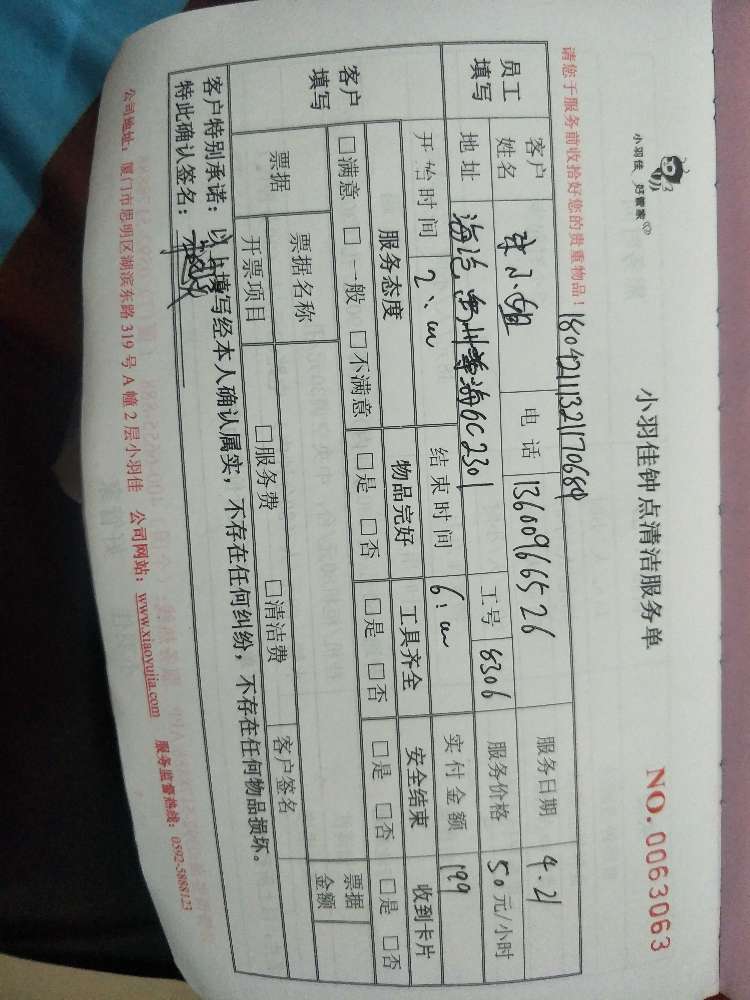 小羽佳 好管家
小羽佳钟点清洁服务单
NO. 0063063
请您于服务前收拾好您的贵重物品！
18042111321170689
员工填写
客户姓名 小姐 电话 13600966526 服务日期 4.21
地址 海沧 海6C2301 工号 8306 服务价格 50元/小时
开始时间 2 结束时间 6 实付金额 199
客户填写
服务态度 物品完好 工具齐全 安全结束 收到卡片
□满意 □一般 □不满意 □是 □否 □是 □否 □是 □否 □是 □否
票据 票据名称 客户签名 票据金额
开票项目 □服务费 □清洁费
客户特别承诺：以上填写经本人确认属实，不存在任何纠纷，不存在任何物品损坏。
特此确认签名：
公司地址：厦门市思明区湖滨东路 319 号 A 幢 2 层小羽佳 公司网站：www.xiaoyujia.com 服务监督热线：0592-5888123